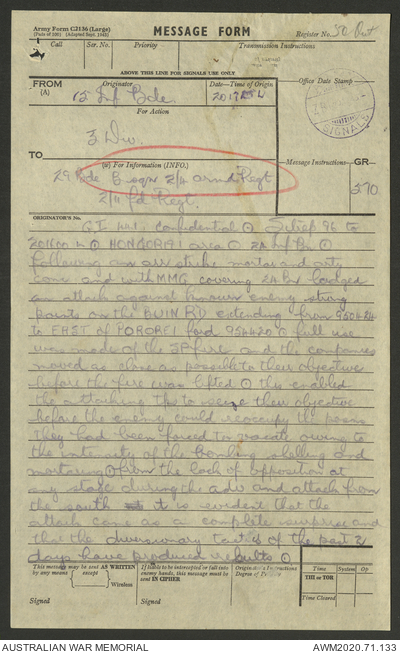 Army Form C2136 (Large)
MESSAGE FORM
Register No.
Call
Ser. No.
Priority
Transmission Instructions
ABOVE THIS LINE FOR SIGNALS USE ONLY
FROM
Originator
Date—Time of Origin
Office Date Stamp
(A)
15 Inf Bde
For Action
3 Div
SIGNALS
TO
(w) For Information (INFO.)
Message Instructions
GR
29 Bde B sqn 2/4 armd Regt
2/11 fd Regt
370
ORIGINATOR'S No.
confidential ⊙ Sitrep 96 to
201600 ⊙ HONGORAI area ⊙ 24 Inf Bn ⊙
following an air strike mortar and arty
conc and with MMG covering 24 Bn lodged
an attack against known enemy strong
points on the BUIN RD extending from
to EAST of POROREI ford 954420 ⊙ full use
was made of the SP fire and the companies
moved as close as possible to their objectives
before the fire was lifted ⊙ this enabled
the attacking tps to seize their objective
before the enemy could reoccupy the posns
they had been forced to vacate owing to
the intensity of the bombing shelling and
mortaring ⊙ from the lack of opposition at
any stage during the adv and attack from
the south it is evident that the
attack came as a complete surprise and
that the diversionary tactics of the past 2
days have produced results ⊙
This message may be sent AS WRITTEN
by any means except Wireless
If liable to be intercepted or fall into
enemy hands, this message must be
sent IN CIPHER
Originator's Instructions
Degree of Priority
Time
System
Op
THI or TOR
Time Cleared
Signed
Signed
AUSTRALIAN WAR MEMORIAL
AWM2020.71.133